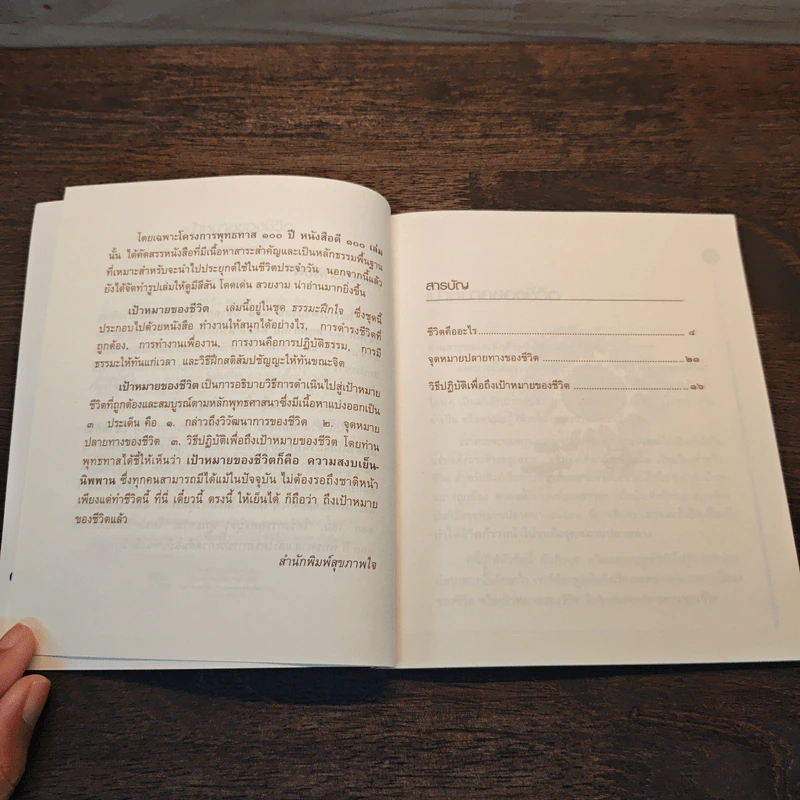 โดยเฉพาะโครงการพุทธทาส ๑๐๐ ปี หนังสือดี ๑๐๐ เล่ม
นั้น ได้คัดสรรหนังสือที่มีเนื้อหาสาระสำคัญและเป็นหลักธรรมพื้นฐาน
ที่เหมาะสำหรับจะนำไปประยุกต์ใช้ในชีวิตประจำวัน นอกจากนี้แล้ว
ยังได้จัดทำรูปเล่มให้ดูมีสีสัน โดดเด่น สวยงาม น่าอ่านมากยิ่งขึ้น
เป้าหมายของชีวิต เล่มนี้อยู่ในชุด ธรรมะฝึกใจ ซึ่งชุดนี้
ประกอบไปด้วยหนังสือ ทำงานให้สนุกได้อย่างไร, การดำรงชีวิตที่
ถูกต้อง, การทำงานเพื่องาน, การงานคือการปฏิบัติธรรม, การมี
ธรรมะให้ทันแก่เวลา และวิธีฝึกสติสัมปชัญญะให้ทันขณะจิต
เป้าหมายของชีวิต เป็นการอธิบายวิธีการดำเนินไปสู่เป้าหมาย
ชีวิตที่ถูกต้องและสมบูรณ์ตามหลักพุทธศาสนาซึ่งมีเนื้อหาแบ่งออกเป็น
๓ ประเด็น คือ ๑. กล่าวถึงวิวัฒนาการของชีวิต ๒. จุดหมาย
ปลายทางของชีวิต ๓. วิธีปฏิบัติเพื่อถึงเป้าหมายของชีวิต โดยท่าน
พุทธทาสได้ชี้ให้เห็นว่า เป้าหมายของชีวิตก็คือ ความสงบเย็น-
นิพพาน ซึ่งทุกคนสามารถมีได้แม้ในปัจจุบัน ไม่ต้องรอถึงชาติหน้า
เพียงแต่ทำชีวิตนี้ ที่นี่ เดี๋ยวนี้ ตรงนี้ ให้เย็นได้ ก็ถือว่า ถึงเป้าหมาย
ของชีวิตแล้ว
สำนักพิมพ์สุขภาพใจ
สารบัญ
ชีวิตคืออะไร
จุดหมายปลายทางของชีวิต ๒๑
วิธีปฏิบัติเพื่อถึงเป้าหมายของชีวิต